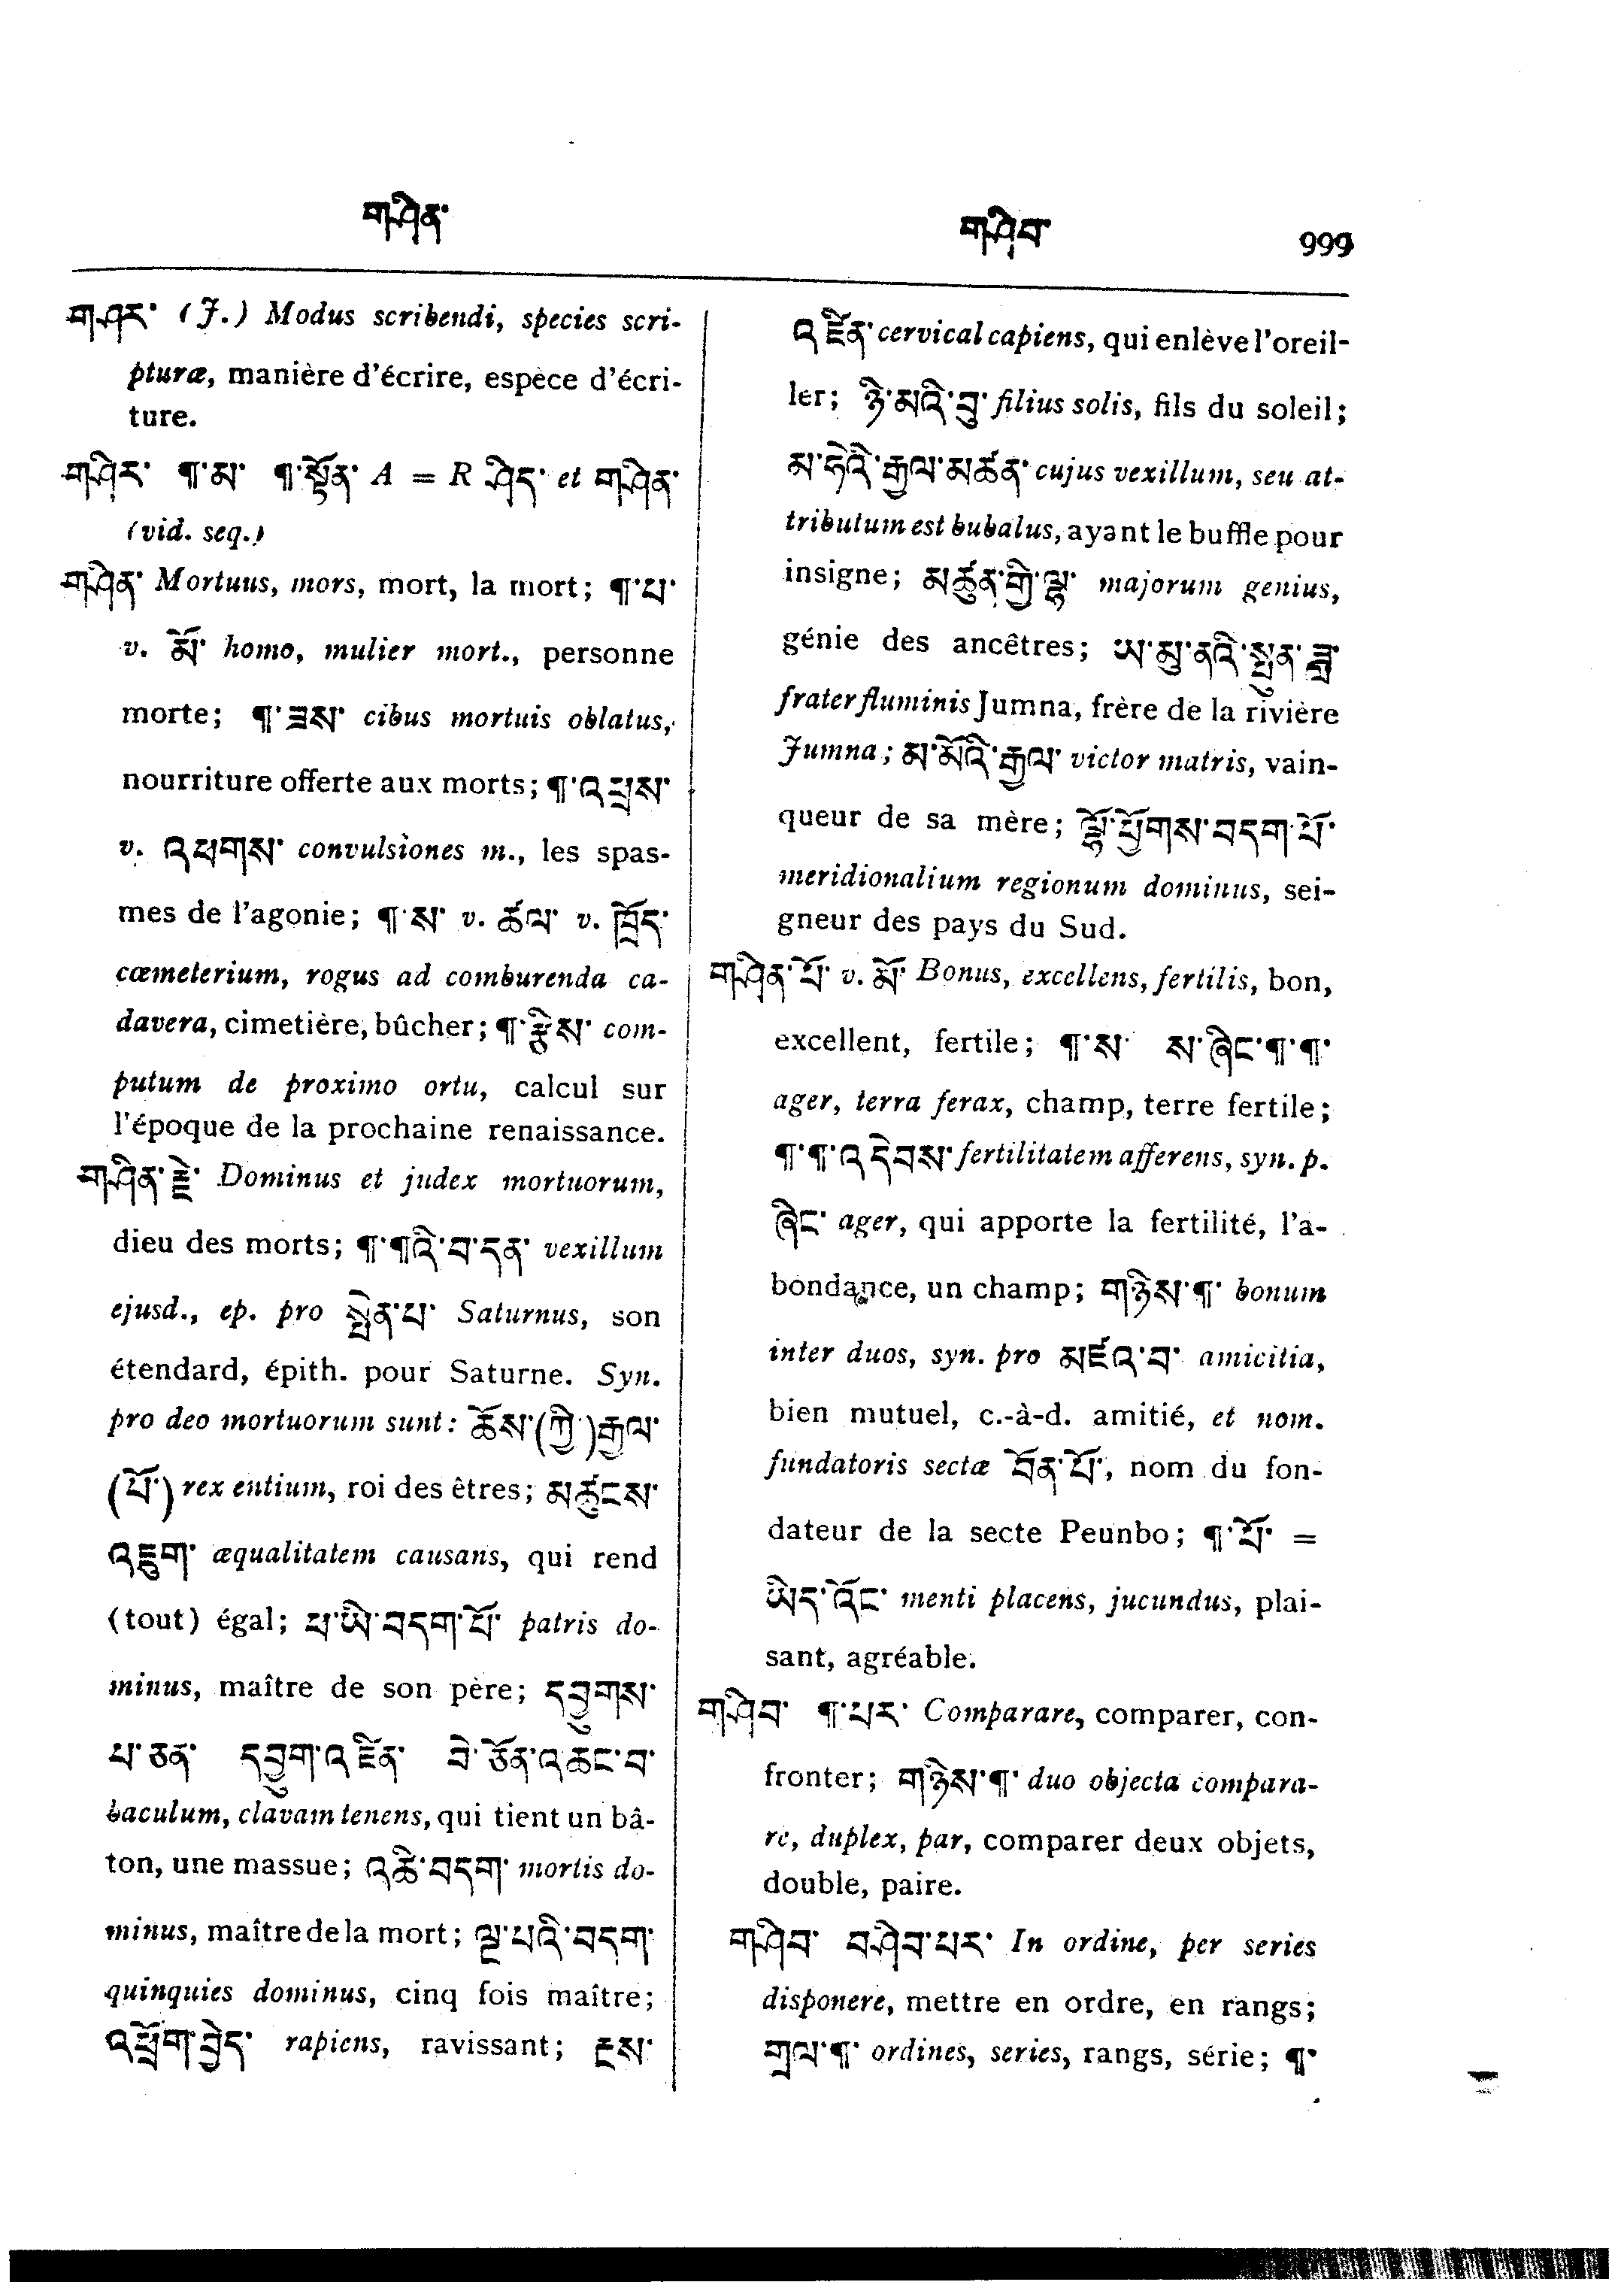 གཤིན་
གཤིབ་ 999
གཤར་ (J.) Modus scribendi, species scri-
pturæ, manière d'écrire, espèce d'écri-
ture.
གཤིར་ ¶་མ་ ¶་སྟོན་ A = R ཤིད་ et གཤིན་
(vid. seq.)
གཤིན་ Mortuus, mors, mort, la mort; ¶་པ་
v. མོ་ homo, mulier mort., personne
morte; ¶་ཟས་ cibus mortuis oblatus,
nourriture offerte aux morts; ¶་འཕྲས་
v. འཕགས་ convulsiones m., les spas-
mes de l'agonie; ¶་ས་ v. ཚལ་ v. ཁྲོད་
cœmeterium, rogus ad comburenda ca-
davera, cimetière, bûcher; ¶་རྩིས་ com-
putum de proximo ortu, calcul sur
l'époque de la prochaine renaissance.
གཤིན་རྗེ་ Dominus et judex mortuorum,
dieu des morts; ¶་¶འི་བ་དན་ vexillum
ejusd., ep. pro སྤེན་པ་ Saturnus, son
étendard, épith. pour Saturne. Syn.
pro deo mortuorum sunt: ཆོས་(ཀྱི་)རྒྱལ་
(པོ་) rex entium, roi des êtres; མཚུངས་
འཇུག་ æqualitatem causans, qui rend
(tout) égal; ཕ་ཡི་བདག་པོ་ patris do-
minus, maître de son père; དབྱུགས་
པ་ཅན་ དབྱུག་འཛིན་ བེ་ཅོན་འཆང་བ་
baculum, clavam tenens, qui tient un bâ-
ton, une massue; འཆི་བདག་ mortis do-
minus, maître de la mort; ལྔ་པའི་བདག་
quinquies dominus, cinq fois maître;
འཕྲོག་བྱེད་ rapiens, ravissant; རྔས་
འཛིན་ cervical capiens, qui enlève l'oreil-
ler; ཉི་མའི་བུ་ filius solis, fils du soleil;
མ་ཧེའི་རྒྱལ་མཚན་ cujus vexillum, seu at-
tributum est bubalus, ayant le buffle pour
insigne; མཚུན་གྱི་ལྷ་ majorum genius,
génie des ancêtres; ཡ་མུ་ནའི་སྤུན་ཟླ་
frater fluminis Jumna, frère de la rivière
Jumna; མ་མོའི་རྒྱལ་ victor matris, vain-
queur de sa mère; ལྷོ་ཕྱོགས་བདག་པོ་
meridionalium regionum dominus, sei-
gneur des pays du Sud.
གཤིན་པོ་ v. མོ་ Bonus, excellens, fertilis, bon,
excellent, fertile; ¶་ས་ ས་ཞིང་¶་¶་
ager, terra ferax, champ, terre fertile;
¶་¶་འདེབས་ fertilitatem afferens, syn. p.
ཞིང་ ager, qui apporte la fertilité, l'a-
bondance, un champ; གཉིས་¶་ bonum
inter duos, syn. pro མཛའ་བ་ amicitia,
bien mutuel, c.-à-d. amitié, et nom.
fundatoris sectæ བོན་པོ་, nom du fon-
dateur de la secte Peunbo; ¶་པོ་ =
ཡིད་འོང་ menti placens, jucundus, plai-
sant, agréable.
གཤིབ་ ¶་པར་ Comparare, comparer, con-
fronter; གཉིས་¶་ duo objecta compara-
re, duplex, par, comparer deux objets,
double, paire.
གཤིབ་ བཤིབ་པར་ In ordine, per series
disponere, mettre en ordre, en rangs;
གྲལ་¶་ ordines, series, rangs, série; ¶་